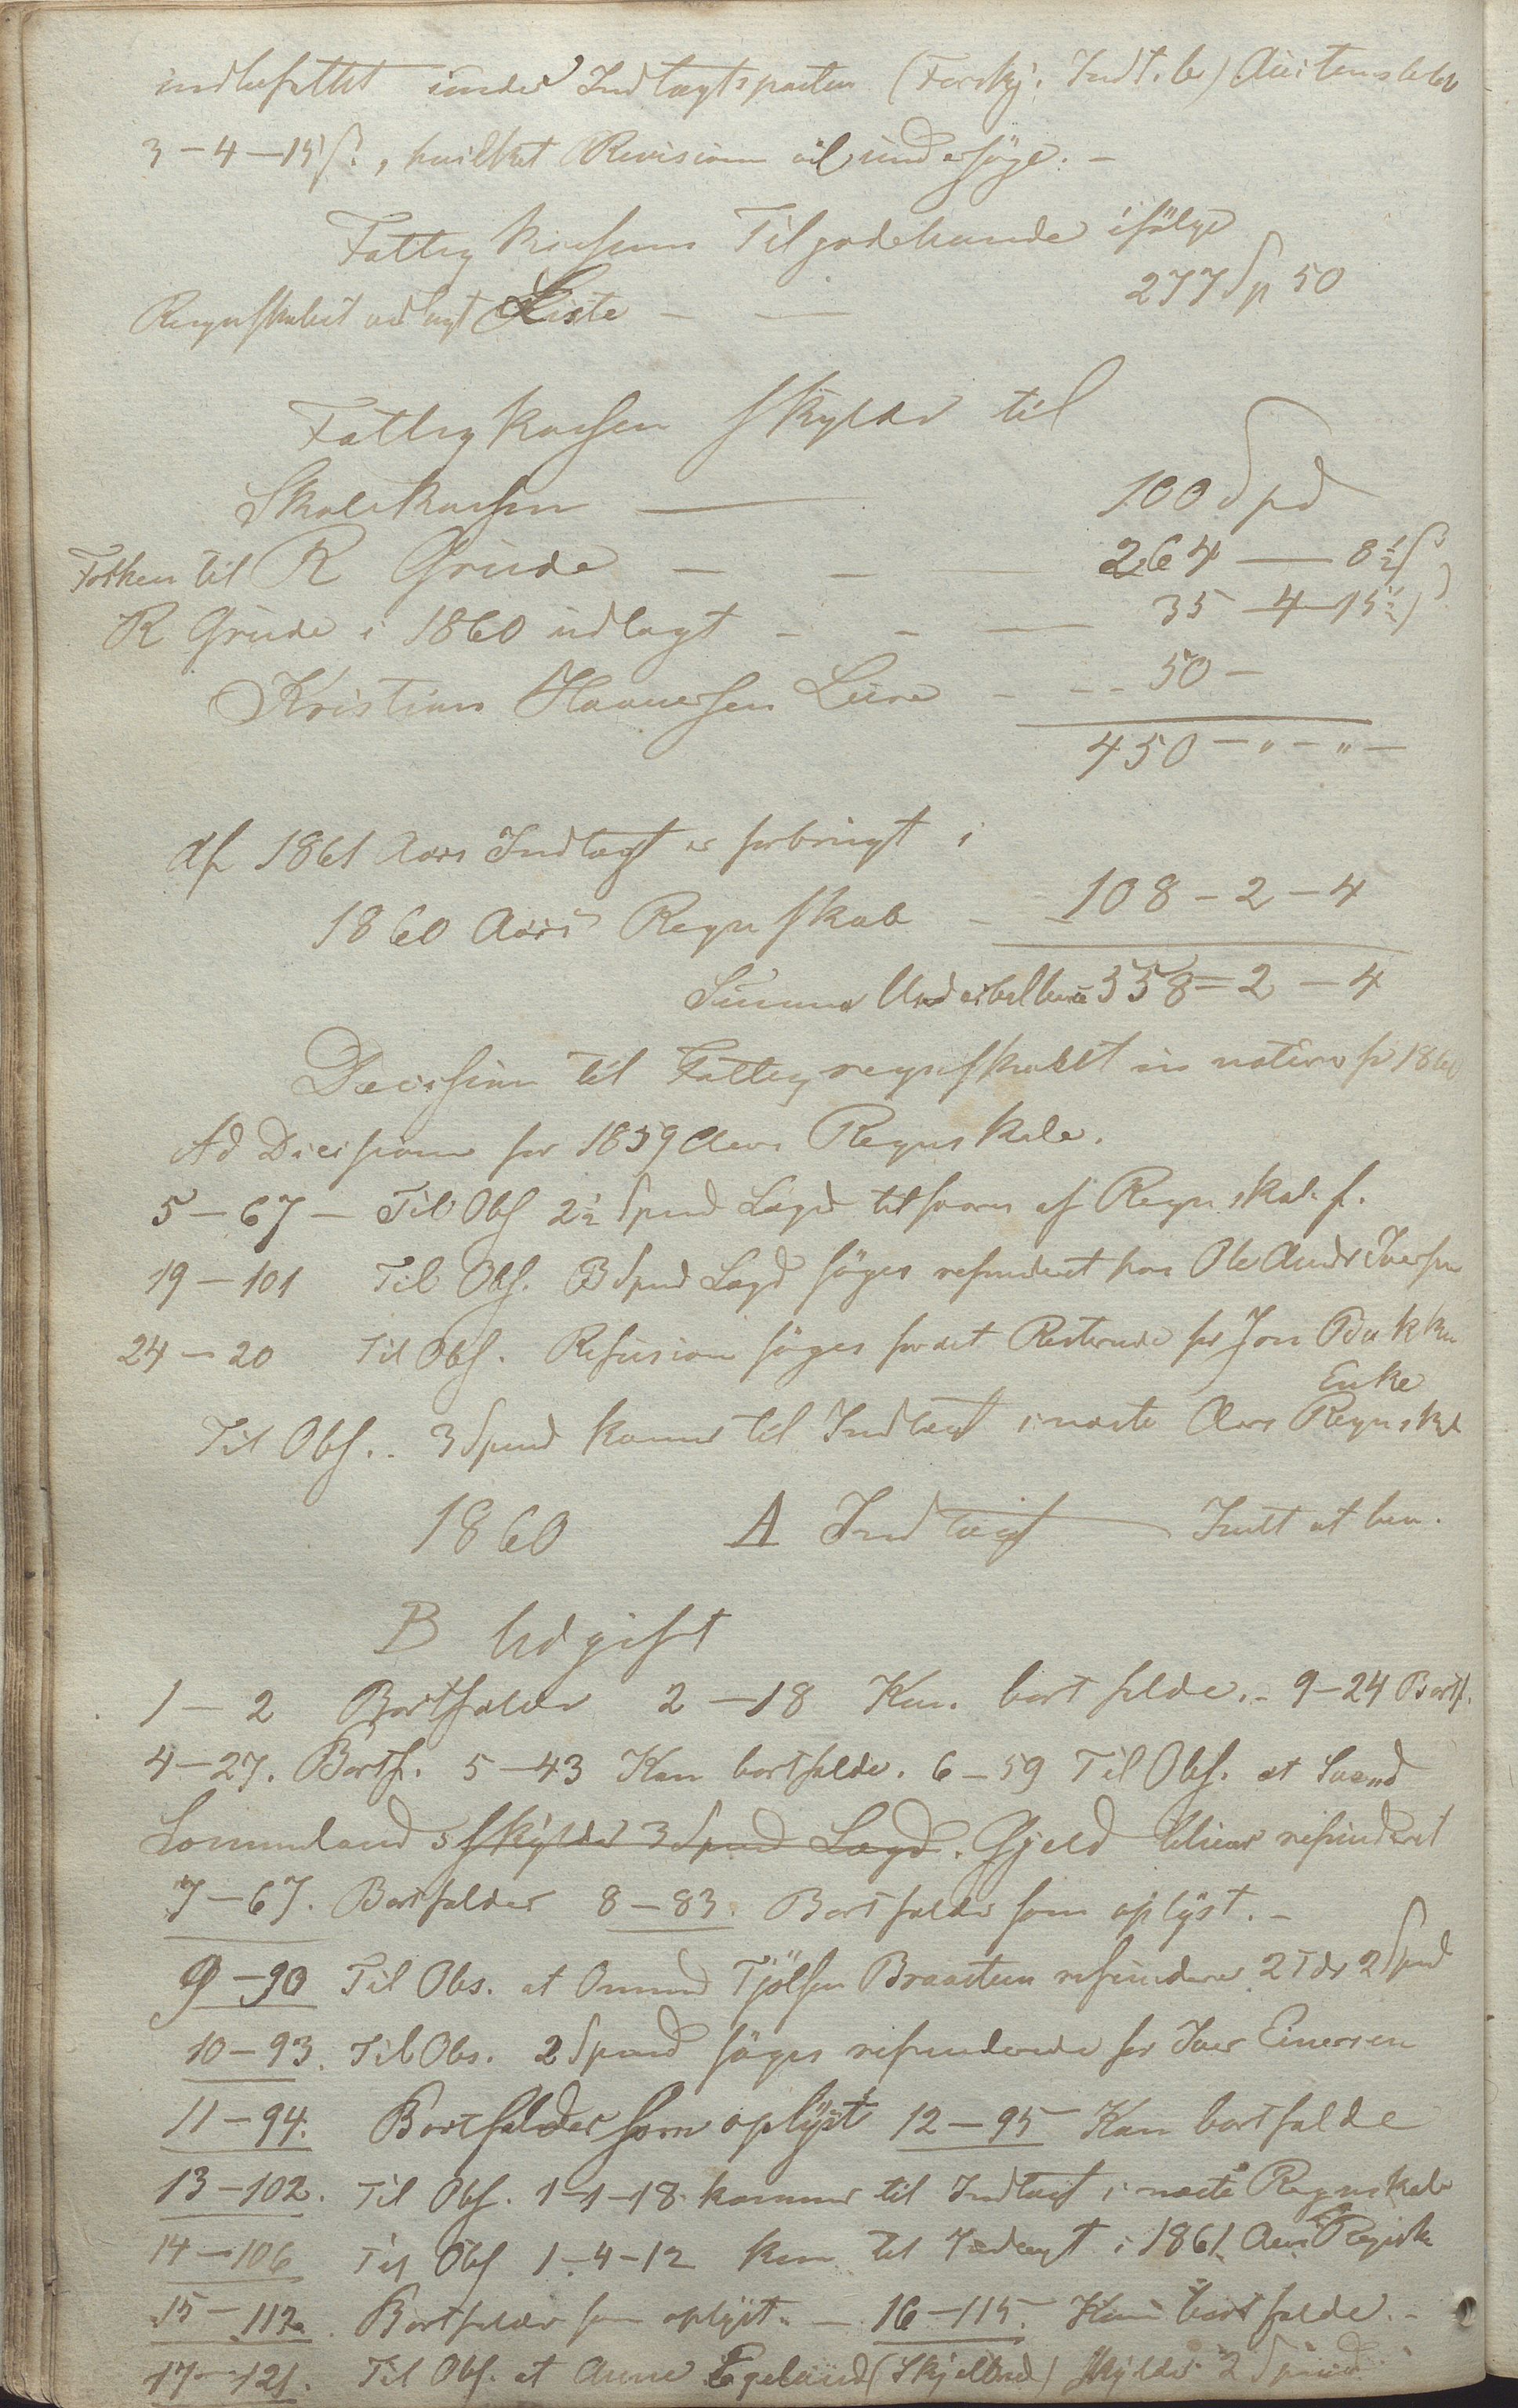 indbefattet under Indtægtsposten (Forskj. Indt. be)
3-4-15 ß., hvilket Revisionen vil undersøge. -
Fattigkassens Tilgodehavende ifølge
Regnskabet vedlagt Liste - — 277 Sp 50
Fattigkassen skylder til
Skolekassen — 100 Spd
Forhen til R Grude - - — 264 — 8½ ß
R Grude i 1860 udlagt - - — 35-4-15½ ß
Kristian Haaversen Lura - - - 50 -
450 - " - " -
Af 1861 Aars Indtægt er forbrugt i
1860 Aars Regnskab - 108-2-4
Summa Underballance 558-2-4
Decission til Fattigregnskabet in natura for 1860
Ad Decissionen for 1859 Aars Regnskab.
5-67- Til Obs 2½ Spnd Lægd tilsvares af Regnskabsf.
19-101 Til Obs. 3 Spnd Lægd søges refunderet hos Ole Andr Iversen
24-20 Til Obs. Refusion søges for det Resterende for Jon Bakken
Enke
Til Obs.. 3 Spnd kommer til Indtægt i næste Aars Regnskab
1860 A Indtægt — Intet at bem.
B Udgift
1-2 Bortfalder 2-18 Kan bortfalde. - 9-24 Bortf.
4-27. Bortf. 5-43 Kan bortfalde. 6-59 Til Obs. at Svend
Sommelands skylder 3 Spnd Lægd. Gjeld bliver refunderet
7-67. Bortfalder 8-83. Bortfalder som oplyst. -
9-90 Til Obs. at Omund Tjølsen Braasteen refunderer 2 Tdr 2 Spnd
10-93. Til Obs. 2 Spand søges refunderede for Iver Einersen
11-94. Bortfalder som oplyst 12-95 Kan bortfalde
13-102. Til Obs. 1-1-18 kommer til Indtægt i næste Regnskab
14-106 Til Obs 1-4-12 kom. til Indtægt i 1861 Aars Regnsk
15-112. Bortfalder som oplyst. - 16-115. Kan bortfalde. -
17-121. Til Obs. at Anne Egeland (Skjelbred) skylder 2 Spand